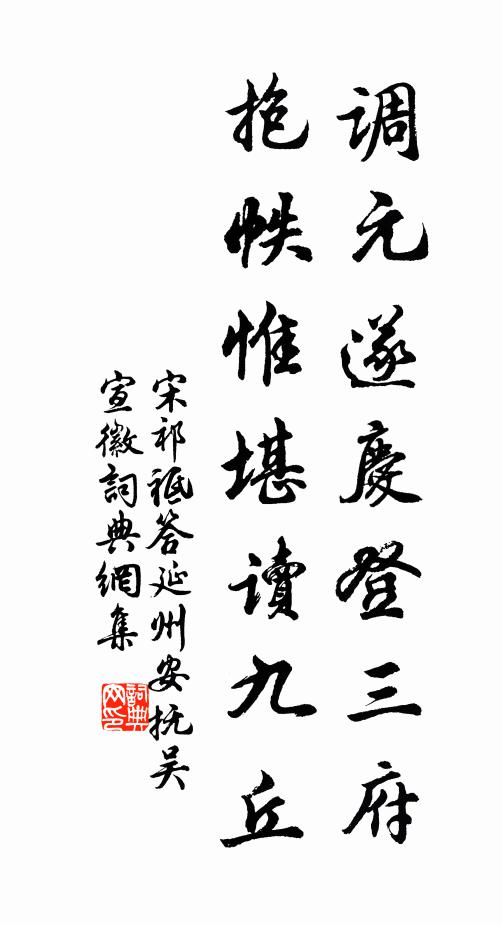 調元遂慶登三府
抱帙惟堪讀九丘
宋祁祗答延州安抚吴
宣徽詞典網集
詞典网印